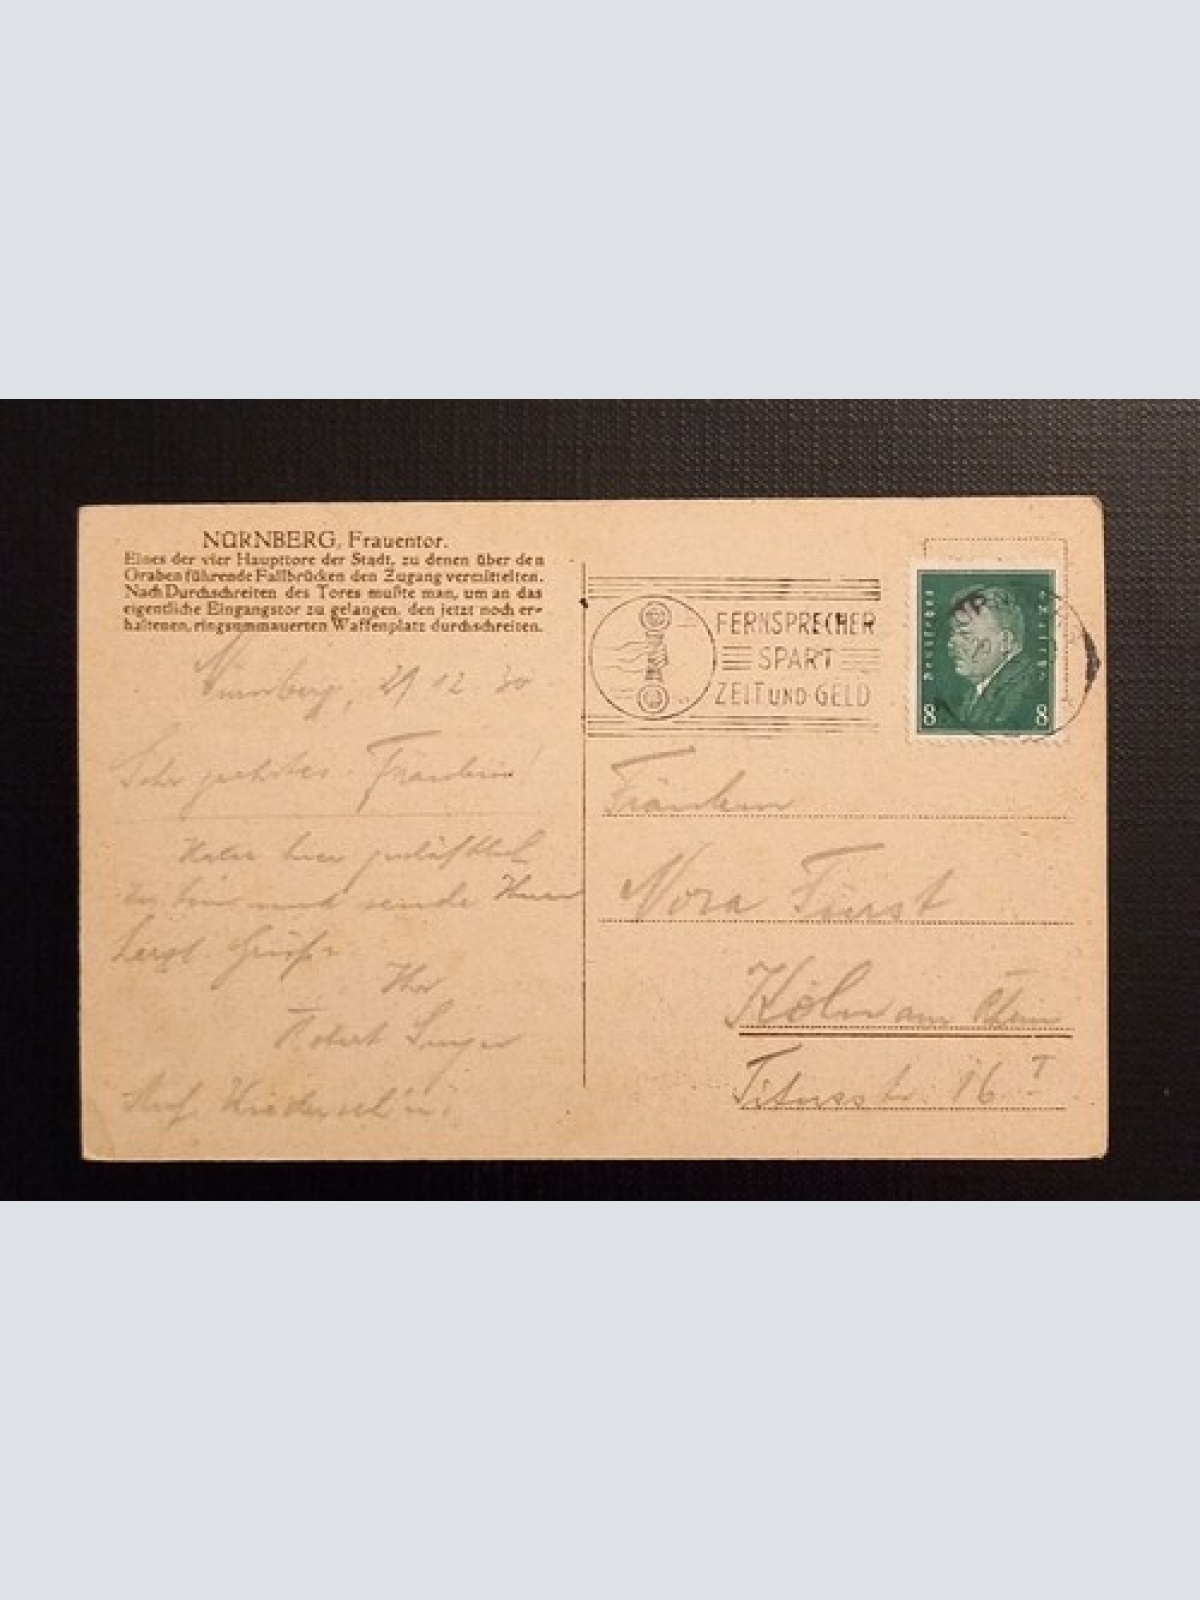 NÜRNBERG, Frauentor.
Eines der vier Haupttore der Stadt, zu denen über den
Graben führende Fallbrücken den Zugang vermittelten.
Nach Durchschreiten des Tores mußte man, um an das
eigentliche Eingangstor zu gelangen, den jetzt noch er-
haltenen, ringsummauerten Waffenplatz durchschreiten.
Nürnberg, 29 12. 30
Sehr geehrtes Fräulein!
hier geschäftlich
zu tun und sende Ihnen
herzl. Grüße
Ihr
Robert
Auf Wiederseh'n!
FERNSPRECHER
SPART
ZEIT UND GELD
Deutsches Reich
8 8
Fräulein
Nora Fürst
Köln am Rhein
Titusstr. 16 I